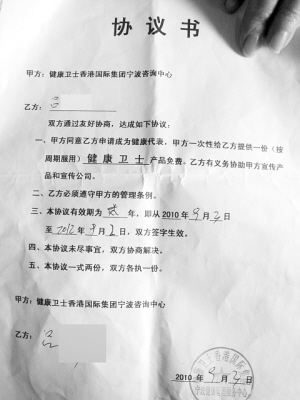 协议书
甲方：健康卫士香港国际集团宁波咨询中心
乙方：吕
双方通过友好协商，达成如下协议：
一、甲方同意乙方申请成为健康代表，甲方一次性给乙方提供一份（按
周期服用）健康卫士产品免费。乙方有义务协助甲方宣传产
品和宣传公司。
二、乙方必须遵守甲方的管理条例。
三、本协议有效期为 年，即从2010年9月2日
至2012年9月2日，双方签字生效。
四、本协议未尽事宜，双方协商解决。
五、本协议一式两份，双方各执一份。
甲方：健康卫士香港国际集团宁波咨询中心
乙方：吕
卫士香港国际
2010年9月2日